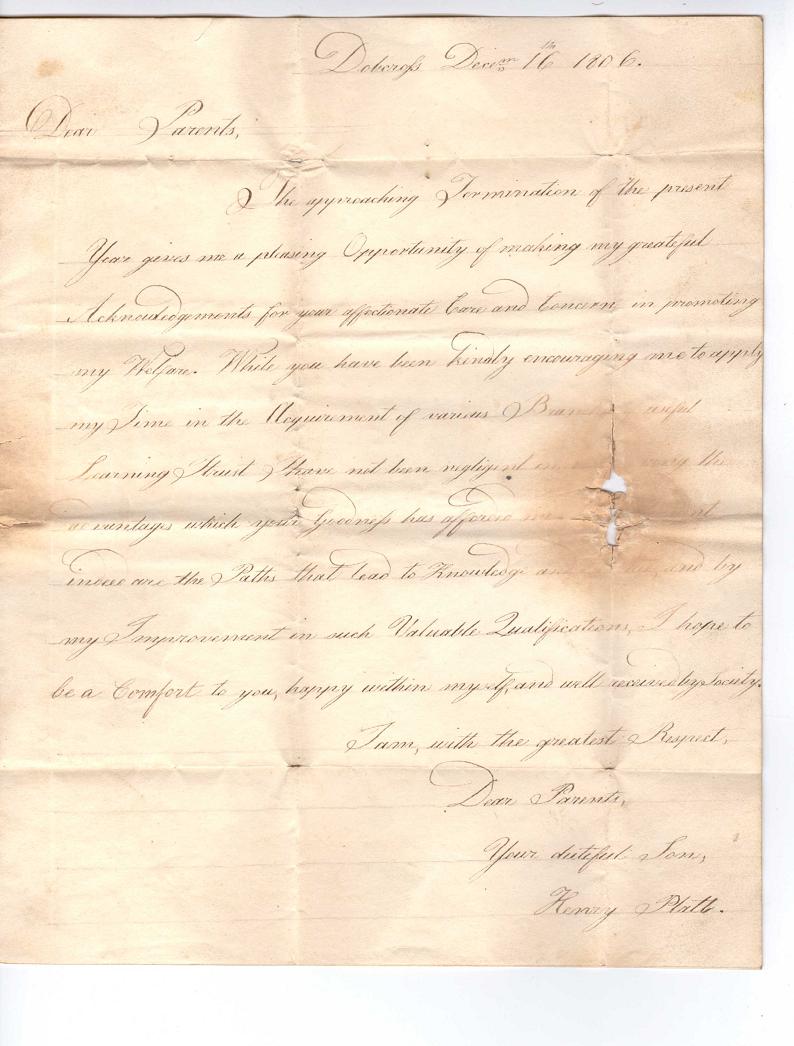 Dobcroſs Decem 16th 1806.
Dear Parents,
The approaching Termination of the present
Year gives me a pleasing Opportunity of making my grateful
Acknowledgements for your affectionate Care and Concern, in promoting
my Welfare. While you have been kindly encouraging me to apply
my Time in the Acquirement of various useful
Learning I trust I have not been negligent the
advantages which your Goodneſs has afforded
indeed are the Paths that lead to Knowledge and by
my Improvement in such Valuable Qualifications, I hope to
be a Comfort to you, happy within myself, and well received by Society.
I am, with the greatest Respect,
Dear Parents,
Your dutiful Son,
Henry Platt.